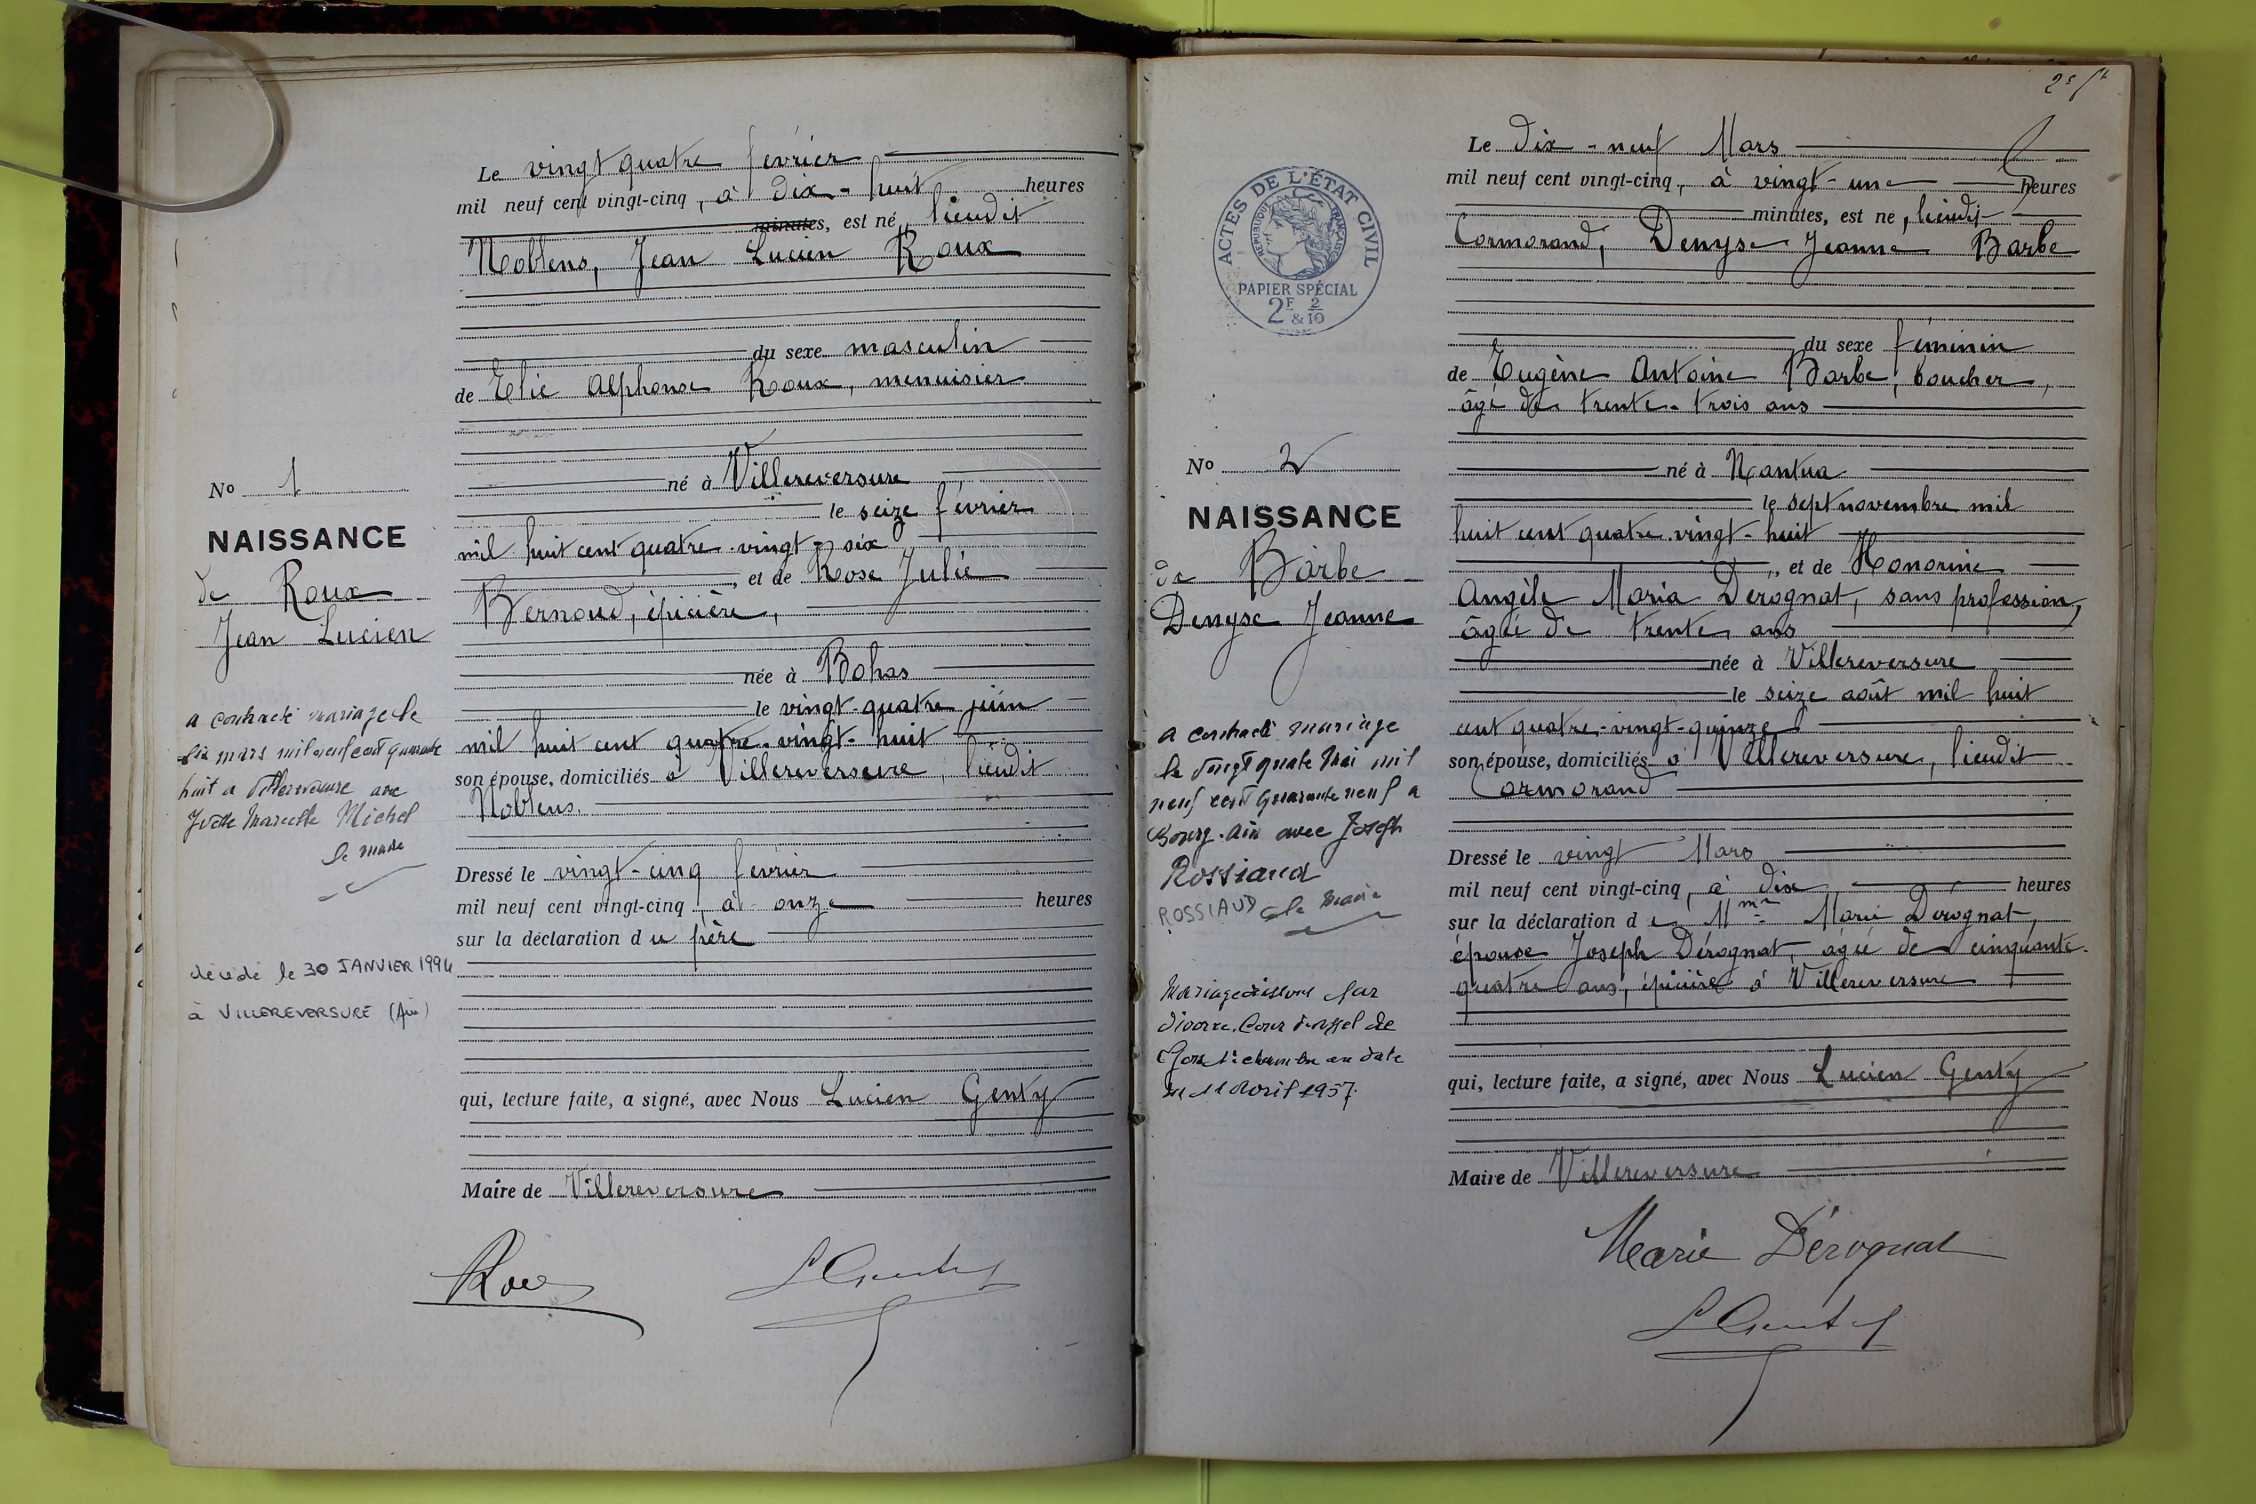 Le vingt quatre février
mil neuf cent vingt-cinq, à dix-huit heures
minutes, est né, lieudit
Noblens, Jean Lucien Roux
du sexe masculin
de Elie Alphonse Roux, menuisier
né à Villereversure
le seize février
mil huit cent quatre-vingt-six
, et de Rose Julie
Bernoud, épicière,
née à Bohas
le vingt-quatre juin
mil huit cent quatre-vingt-huit
son épouse, domiciliés à Villereversure, lieudit
Noblens.
Dressé le vingt-cinq février
mil neuf cent vingt-cinq, à onze heures
sur la déclaration du père
qui, lecture faite, a signé, avec Nous Lucien Genty
Maire de Villereversure
Roux
L Genty
No 1
NAISSANCE
de Roux
Jean Lucien
a contracté mariage le
six mars mil neuf cent quarante
huit a Villereversure avec
Yvette Marcelle Michel
le maire
décédé le 30 JANVIER 1994
à VILLEREVERSURE (Ain)
2
Le dix-neuf Mars
mil neuf cent vingt-cinq, à vingt-une heures
minutes, est né, lieudit
Cormorand, Denyse Jeanne Barbe
du sexe féminin
de Eugène Antoine Barbe, boucher,
âgé de trente-trois ans
né à Nantua
le sept novembre mil
huit cent quatre-vingt-huit
, et de Honorine
Angèle Maria Derognat, sans profession,
âgée de trente ans
née à Villereversure
le seize août mil huit
cent quatre-vingt-quinze
son épouse, domiciliés à Villereversure, lieudit
Cormorand
Dressé le vingt Mars
mil neuf cent vingt-cinq, à dix heures
sur la déclaration de Mme Marie Dérognat,
épouse Joseph Dérognat, agée de cinquante-
quatre ans, épicière à Villereversure
qui, lecture faite, a signé, avec Nous Lucien Genty
Maire de Villereversure
Marie Dérognat
L Genty
ACTES DE L'ÉTAT CIVIL
RÉPUBLIQUE FRANÇAISE
PAPIER SPÉCIAL
2F & 2/10
No 2
NAISSANCE
de Barbe
Denyse Jeanne
a contracté mariage
le vingt quatre Mai mil
neuf cent quarante neuf a
Bourg-Ain avec Joseph
Rossiaud
ROSSIAUD le maire
Mariage dissous par
divorce. Cour d'appel de
Lyon 1e chambre en date
du 11 Avril 1957